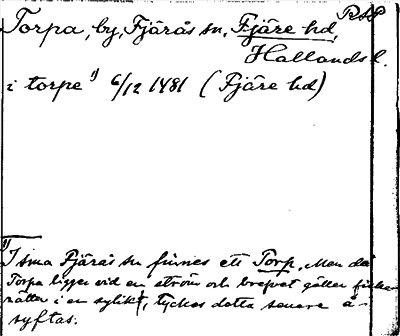 RSP
Torpa, by, Fjärås sn, Fjäre hd,
Hallands l.
i torpe 1) 6/12 1481 (Fjäre hd)
1) I sma Fjärås sn finnes ett Torp. Men då
Torpa ligger vid en ström och brevet gäller fiske-
rätter i en sylikt, tyckes detta senare å-
syftas.